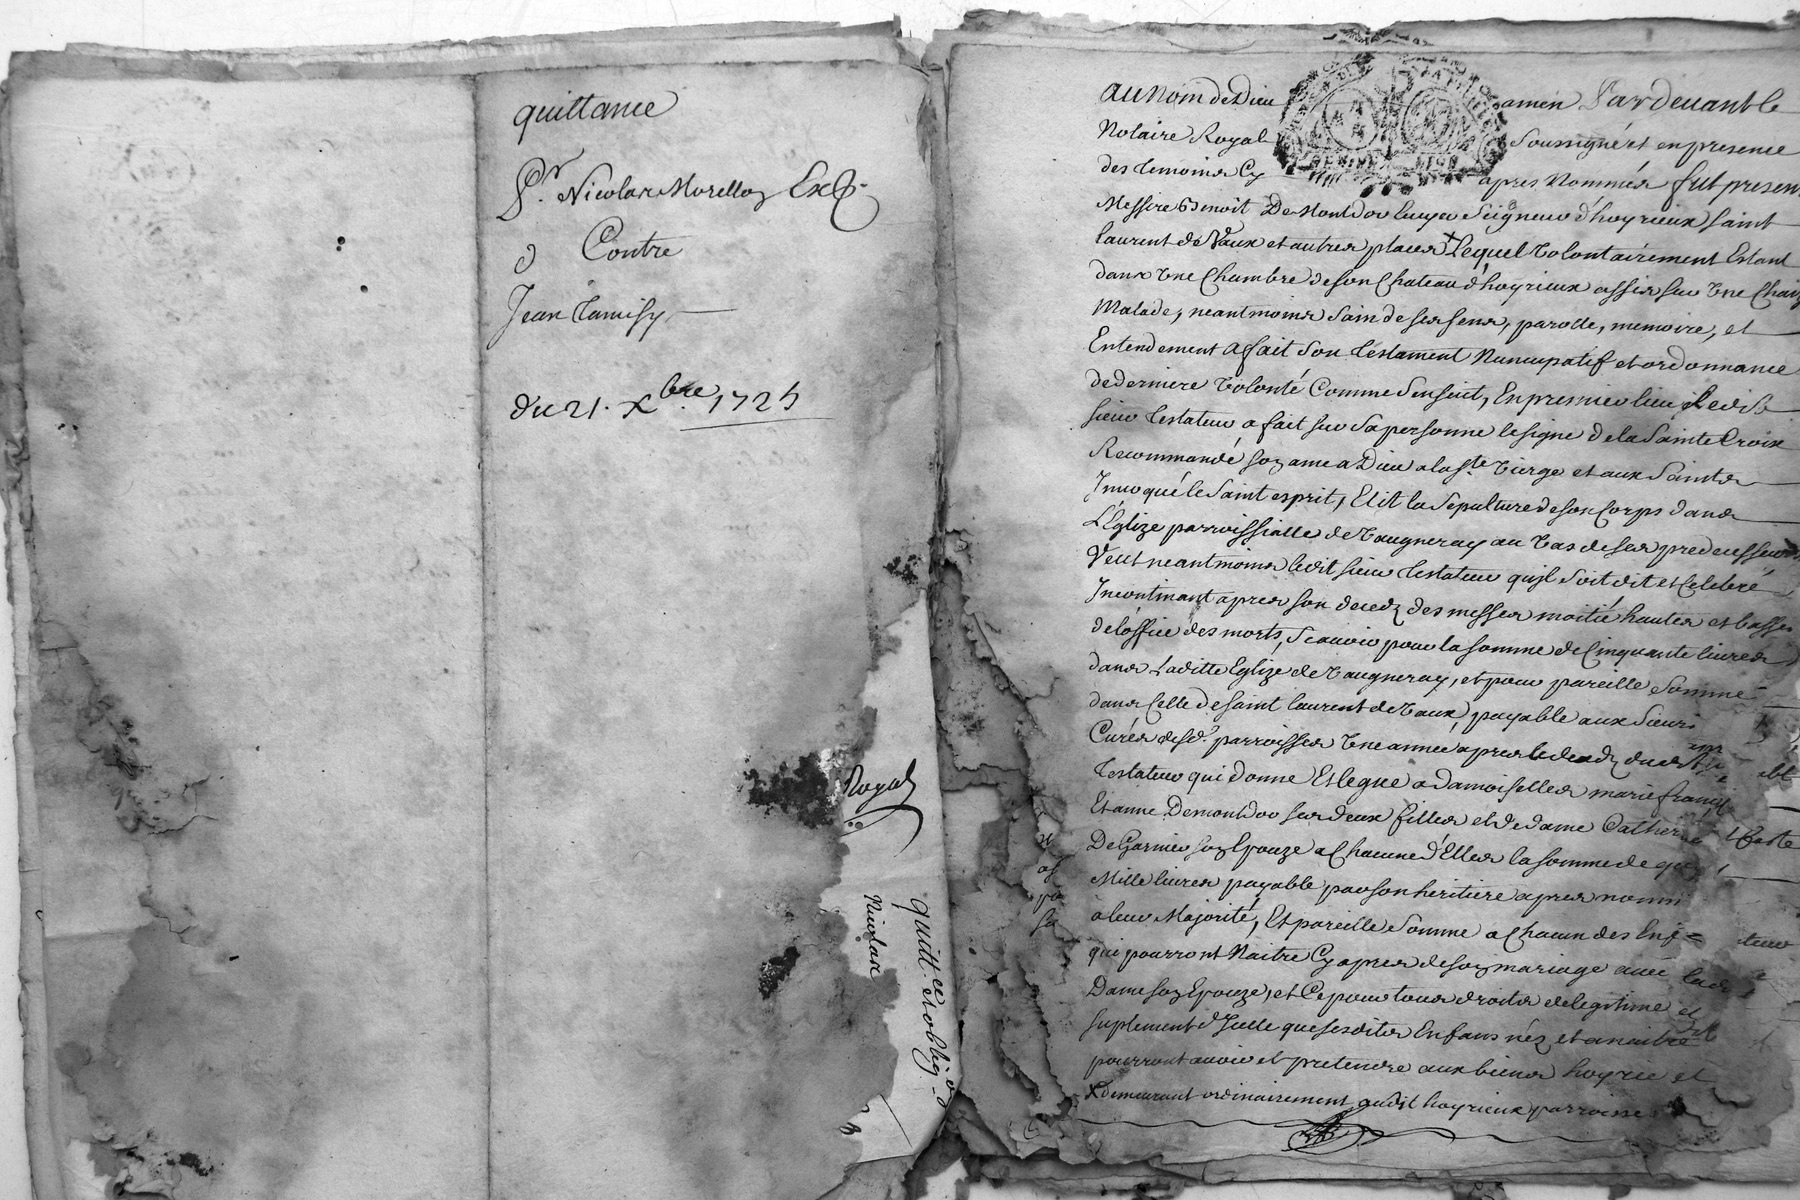 quittance
Sr. Nicolas Morellon
Contre
Jean Tamisy
du 21. Xbre. 1725
Royal
quitt.ce et oblig
Nicolas
au nom de Dieu amen Pardevant le
Notaire Royal soussigné et en presence
des temoins Cy apres Nommés fut presen
Messire Benoit De Montdor Ecuyer Seigneur d'hoyrieux saint
laurent de Vaux et autres places + Lequel Volontairement Estant
dans Une Chambre de son Chateau d'hoyrieux assis sur Une Chaiz
Malade, neantmoins sain de ses sens, parolle, memoire, et
Entendement a fait son testament Nuncupatif et ordonnance
de derniere Volonté Comme s'ensuit, En premier lieu Ledit
sieur testateur a fait sur sa personne le signe de la Sainte Croix
Recommandé son ame a Dieu a la ste. Vierge et aux Saints
Invoqué le Saint esprit, Elit la Sepulture de son Corps dans
L'Eglize parroissialle de Vaugneray au Vas de ses predecesseurs
Veut neantmoins ledit sieur testateur qu'jl soit dit et Celebré
Incontinant apres son decedz des messes moitié hautes et basses
de l'office des morts, scavoir pour la somme de Cinquante livres
dans Laditte Eglize de Vaugneray, et pour pareille somme
dans Celle de saint laurent de Vaux, payable aux sieurs
Curés desd. parroisses Une année apres le decedz dudit
testateur qui donne Et legue a damoiselles marie
Et anne Demontdor ses deux filles et de dame
De Garnier son Epouze a Chacune d'Elles la somme de
Mille livres payable par son heritiere apres
a leur Majorité, Et pareille somme a Chacun des
qui pourront Naitre Cy apres de son mariage avec
Dame son Epouze, et Ce pour tous droits de legitime et
suplement d'Icelle que sesdits Enfans nés et a naitre
pourront avoir et pretendre aux biens hoyrie et
+ demeurant ordinairement audit hoyrieux parroisse